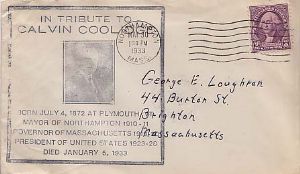 IN TRIBUTE TO
CALVIN COOLIDGE
NORTHAMPTON
1933
MASS.
BORN JULY 4, 1872 AT PLYMOUTH
MAYOR OF NORTHAMPTON 1910-11
GOVERNOR OF MASSACHUSETTS
PRESIDENT OF UNITED STATES 1923-29
DIED JANUARY 5, 1933
George E. Loughran
44 Burton St.
Brighton
Massachusetts